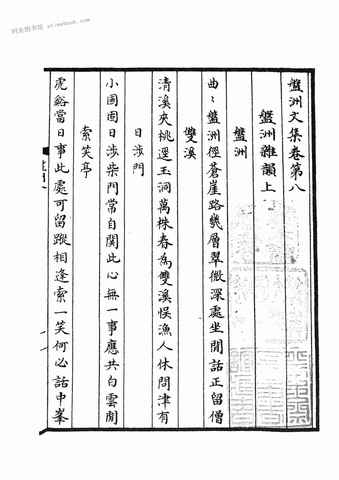 盤洲文集卷第八
盤洲雜韻上
盤洲
曲〻盤洲徑蒼崖路幾層翠微深處坐閒話正留僧
雙溪
清溪夾桃逕玉洞萬株春為雙溪悮漁人休問津有
日涉門
小圃園日涉柴門常自関此心無一事應共白雲閒
索笑亭
虎谿當日事此處可留蹤相逢索一笑何必話中峯